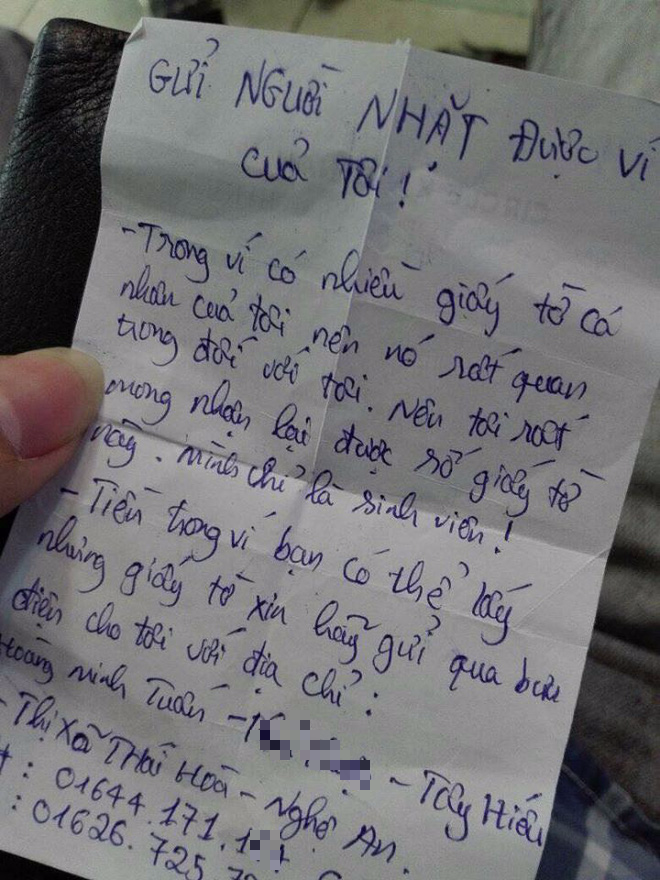 GỬI NGƯỜI NHẶT ĐƯỢC VÍ
CUẢ TÔI !
- Trong ví có nhiều giấy tờ cá
nhân cuả tôi nên nó rất quan
trọng đối với tôi. Nên tôi rất
mong nhận lại được số giấy tờ
này. Mình chỉ là sinh viên !
- Tiền trong ví bạn có thể lấy
nhưng giấy tờ xin hãy gửi qua bưu
điện cho tôi với địa chỉ :
Hoàng Minh Tuấn - - Tây Hiếu
- Thị Xã THÁI HOÀ - Nghệ An.
: 01644.171.1
: 01626.725.7